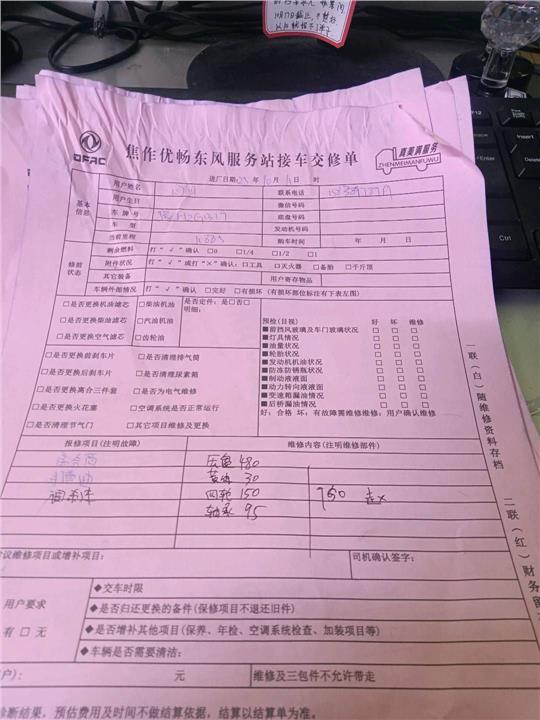 DFAC
焦作优畅东风服务站接车交修单
真美满服务
ZHENMEIMANFUWU
进厂日期 年 月 日 时
基本信息
用户姓名
联系电话
用户生日
微信号码
车牌号
底盘号码
车型
发动机号码
当前里程
购车时间 年 月 日
修前状态
剩余燃料 打“√”确认 □0 □1/4 □1/2 □1
附件状况 打“√”或打“×”确认：□工具 □灭火器 □备胎 □千斤顶
其它装备
用户寄存物品
车辆外部情况 打“√”确认 □完好 □有损坏（有损坏部位标注有下表左图）
□是否更换机油滤芯 □柴油机油 是否定件：是□否□
□是否更换柴油滤芯 □汽油机油 明细：
□是否更换空气滤芯 □齿轮油
□是否更换前刹车片 □是否清理排气筒
□是否更换后刹车片 □是否清理尿素箱
□是否更换离合三件套 □是否为电气维修
□是否更换火花塞 □空调系统是否正常运行
□是否清理节气门 □其它项目维修及更换
预检(目视) 好 坏 维修
■前挡风玻璃及车门玻璃状况 □ □ □
■灯具情况 □ □ □
■油量状况 □ □ □
■轮胎状况 □ □ □
■发动机机油状况 □ □ □
■防冻防锈瓶状况 □ □ □
■制动液液面 □ □ □
■动力转向液液面 □ □ □
■变速箱漏油情况 □ □ □
■后桥漏油情况 □ □ □
好：合格 坏：有故障需维修维修：用户确认维修
报修项目(注明故障)
维修内容(注明维修部件)
压盘 480
黄油 30
回轮 150
轴承 95
760
议维修项目或增补项目：
司机确认签字：
用户要求
有 □ 无
◆交车时限
◆是否归还更换的备件(保修项目不退还旧件)
◆是否增补其他项目(保养、年检、空调系统检查、加装项目等)
◆车辆是否需要清洁：
户)： 元
维修及三包件不允许带走
诊断结果，预估费用及时间不做结算依据，结算以结算单为准。
一联（白）随维修资料存档
二联（红）财务